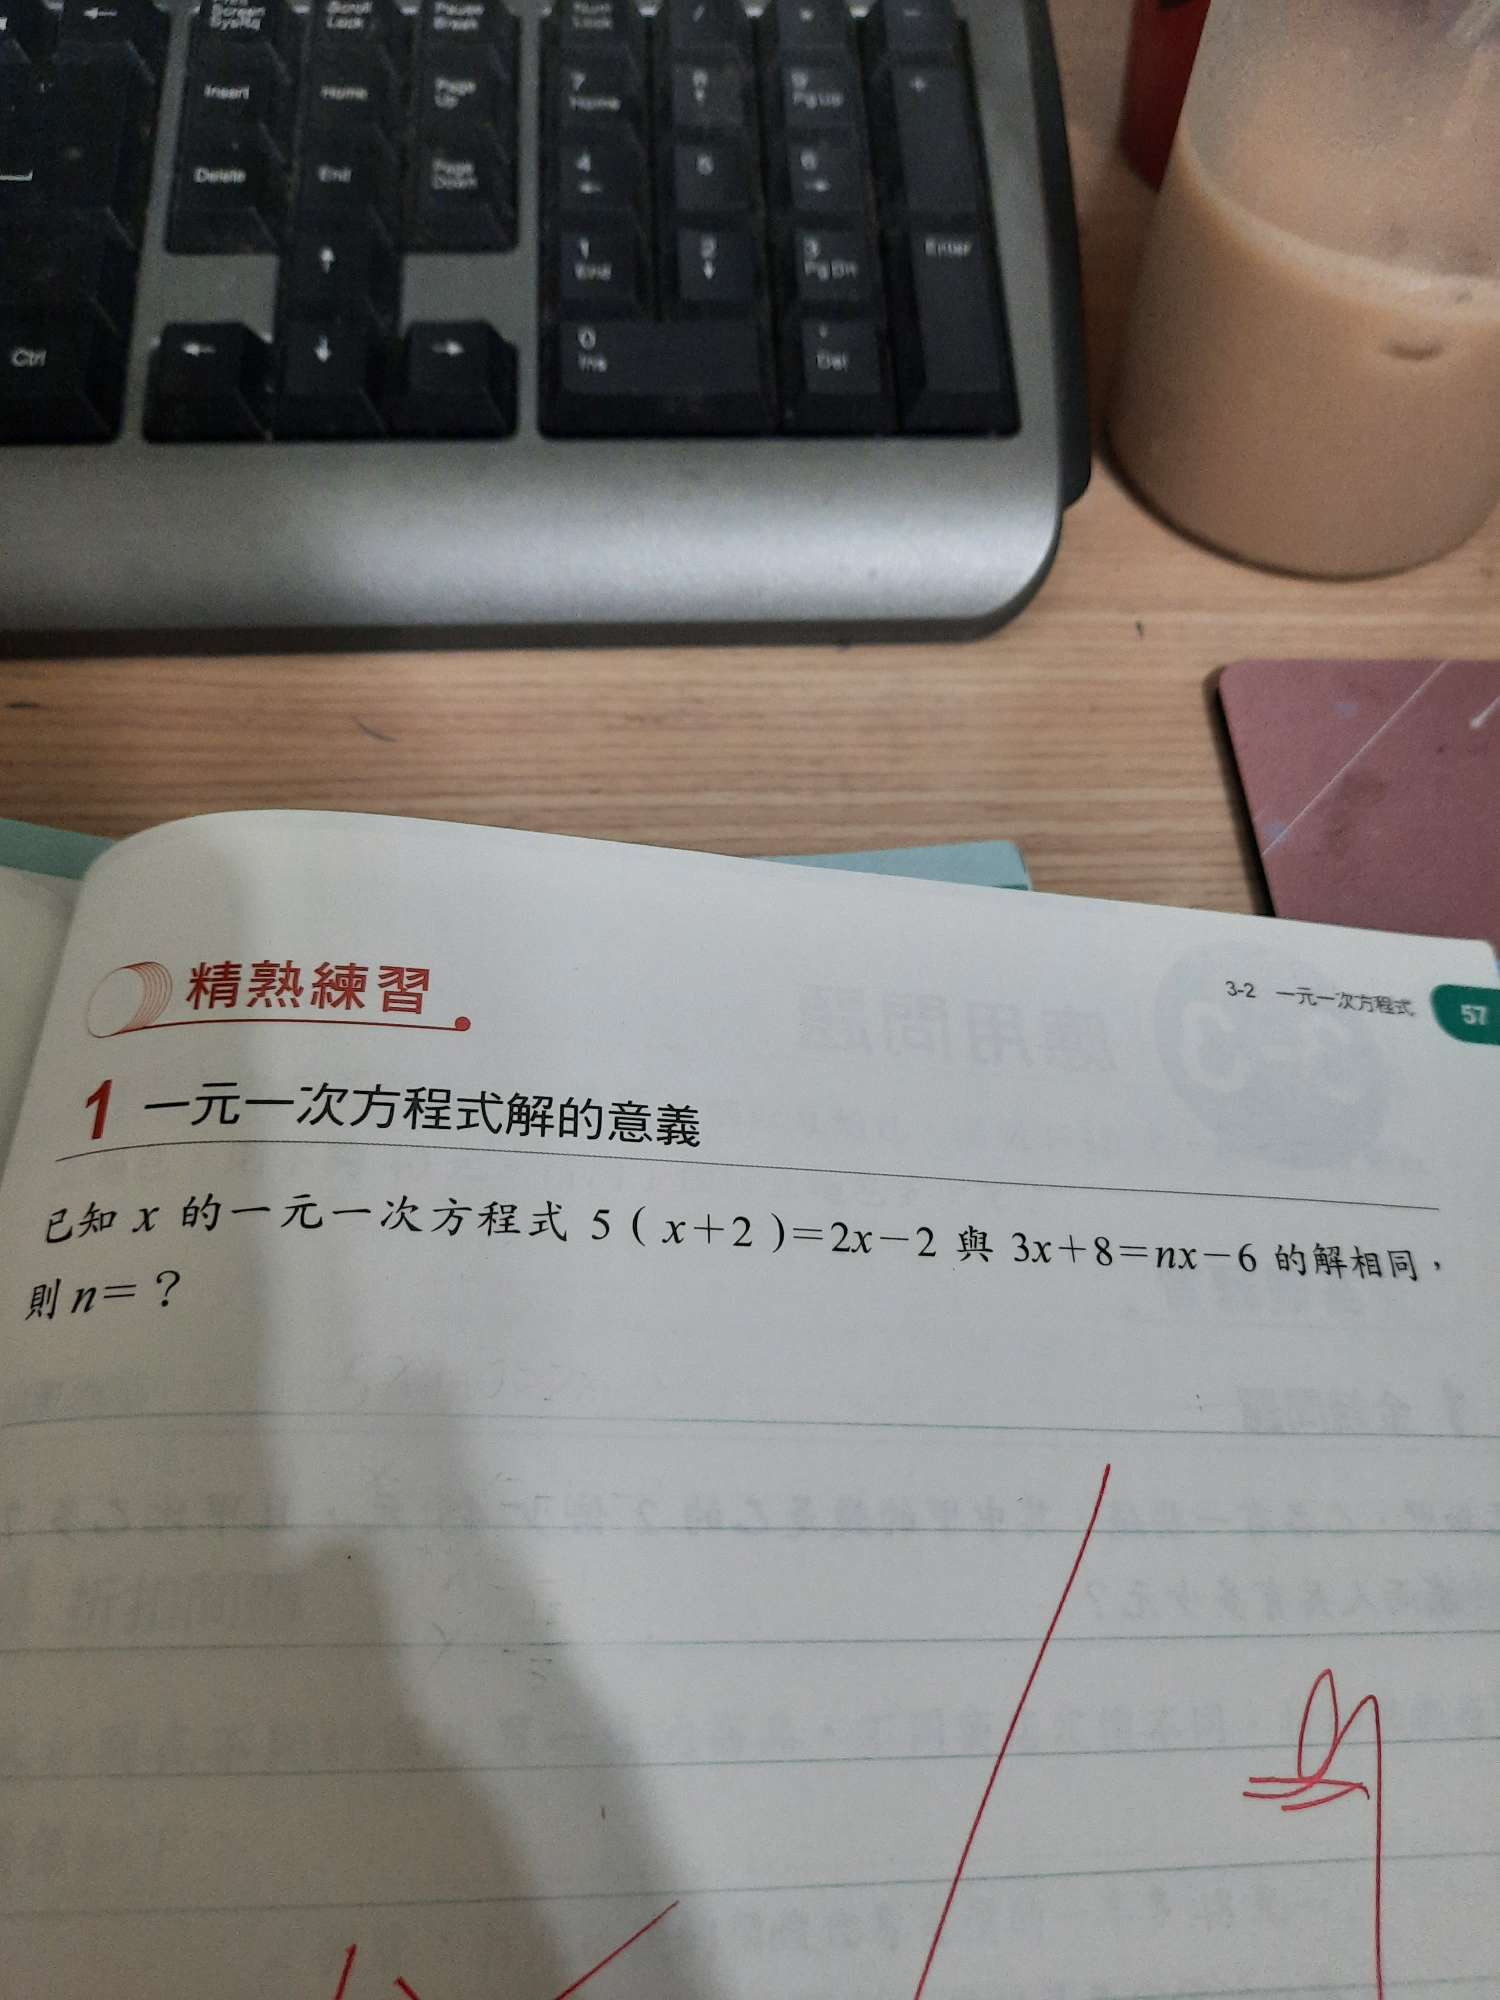 Screen
SysRq
Scroll
Lock
Pause
Break
Num
Lock
Insert
Home
Page
Up
7
Home
8
9
PgUp
+
Delete
End
Page
Down
4
5
6
1
End
2
3
PgDn
Enter
Ctrl
0
Ins
Del
精熟練習
3-2 一元一次方程式
57
1 一元一次方程式解的意義
已知 x 的一元一次方程式 5 ( x+2 )=2x-2 與 3x+8=nx-6 的解相同，
則 n=？